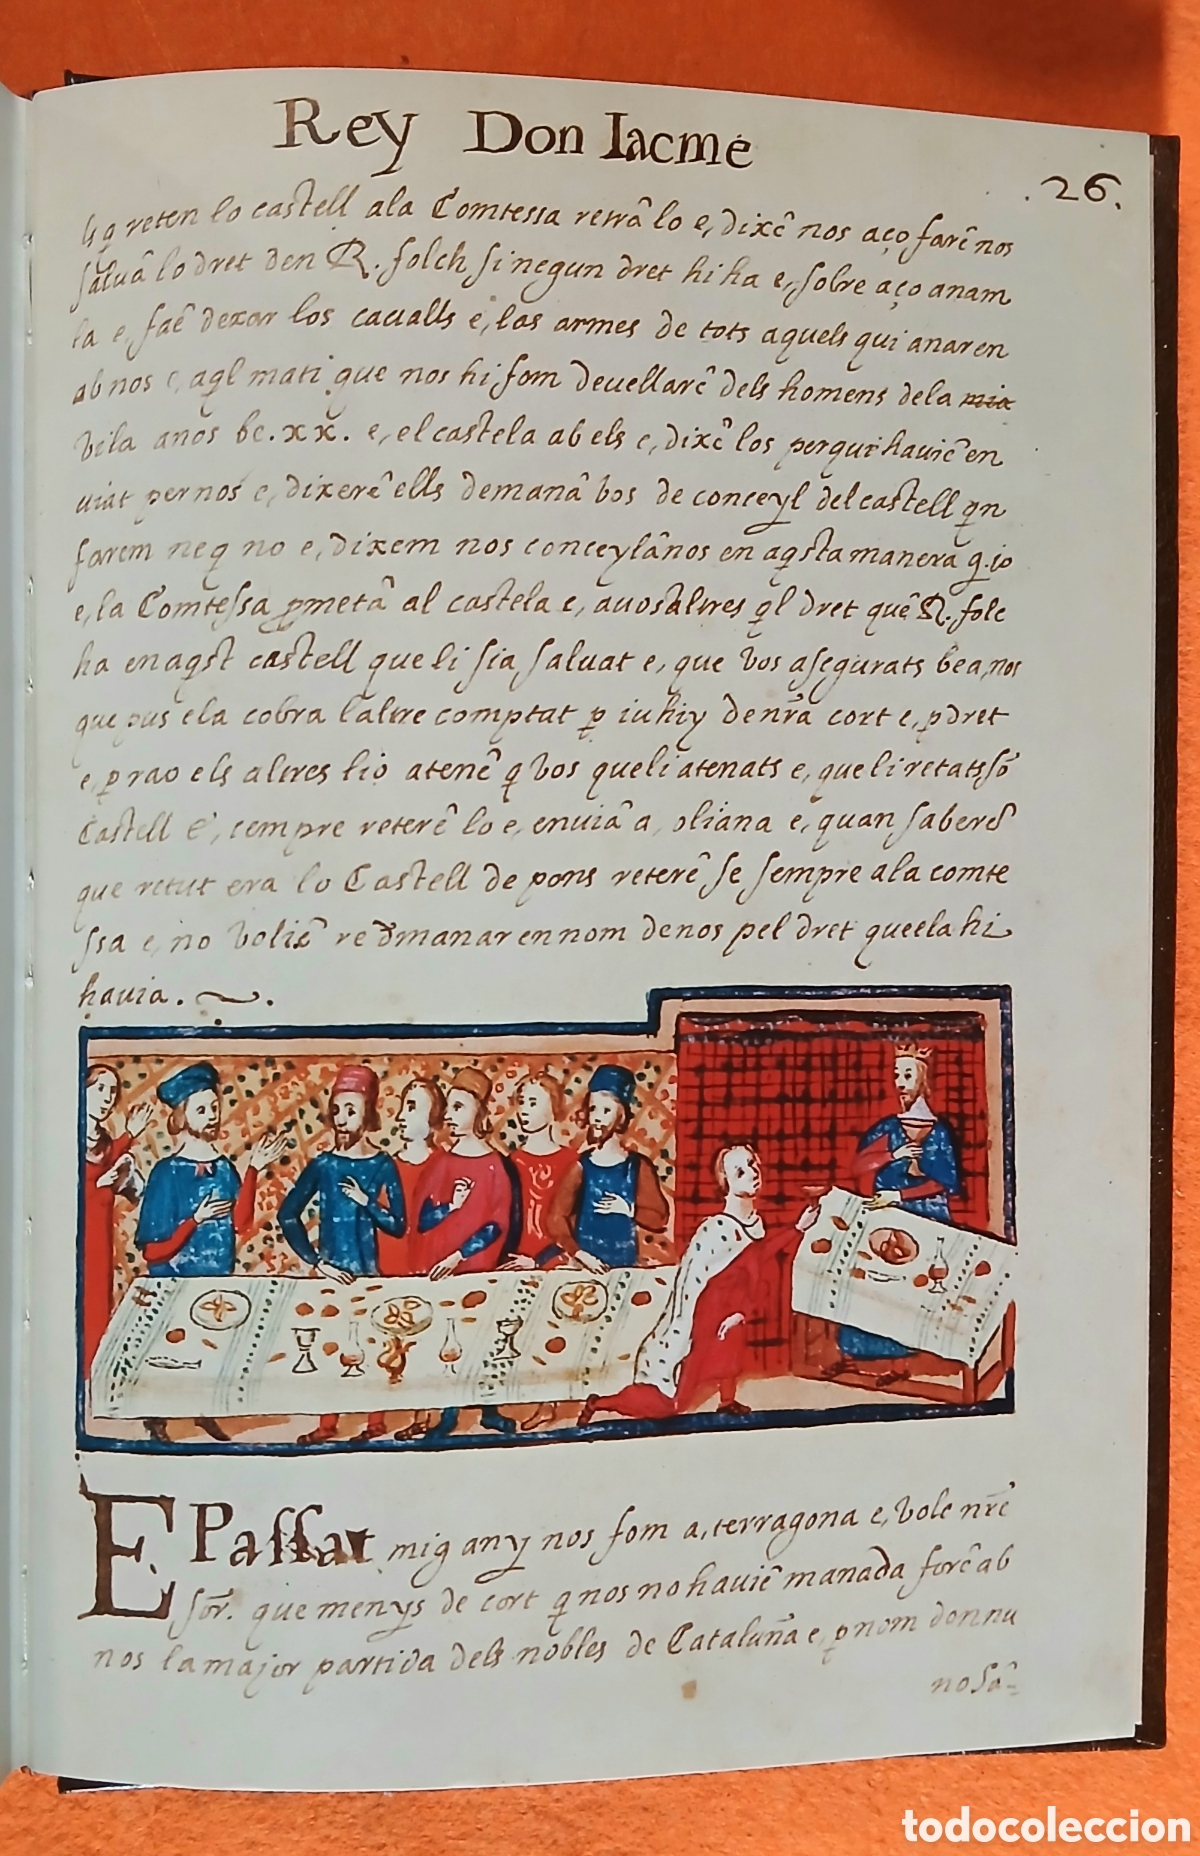 Rey Don Iacme
.26.
reten lo castell ala Comtessa retrâ lo e, dixẽ nos aço farẽ nos
saluâ lo dret den R. folch si negun dret hi ha e, sobre aço anam
la e, faẽ dexar los caualls e, las armes de tots aquels qui anaren
ab nos e, aql mati que nos hi fom deuellarẽ dels homens dela mia
vila anos be .xx. e, el castela ab els e, dixẽ los perqui hauiẽ en
uiat per nos e, dixerẽ ells demanâ vos de conceyl del castell qn
farem neq no e, dixem nos conceylânos en aqsta manera q io
e, la Comtessa pmetâ al castela e, auosaltres ql dret quê R. folc
ha en aqst castell que li sia saluat e, que vos asegurats bea, nos
que pus ela cobra laltre comptat p iuhiy denr̃a cort e, p dret
e, p rao els altres lio atenẽ q vos queli atenats e, queli retats, sõ
Castell E, sempre reterẽ lo e, enuiâ a, oliana e, quan saberẽ
que retut era lo Castell de pons reterẽ se sempre ala comte
ssa e, no voliẽ re dmanar en nom denos pel dret queela hi
hauia.
E Passat mig any nos fom a, terragona e, vole nr̃e
sor̃. que menys de cort q nos no hauiẽ manada forẽ ab
nos la major partida dels nobles de Cataluña e, p nom don nu
no Sâ-
todocoleccion